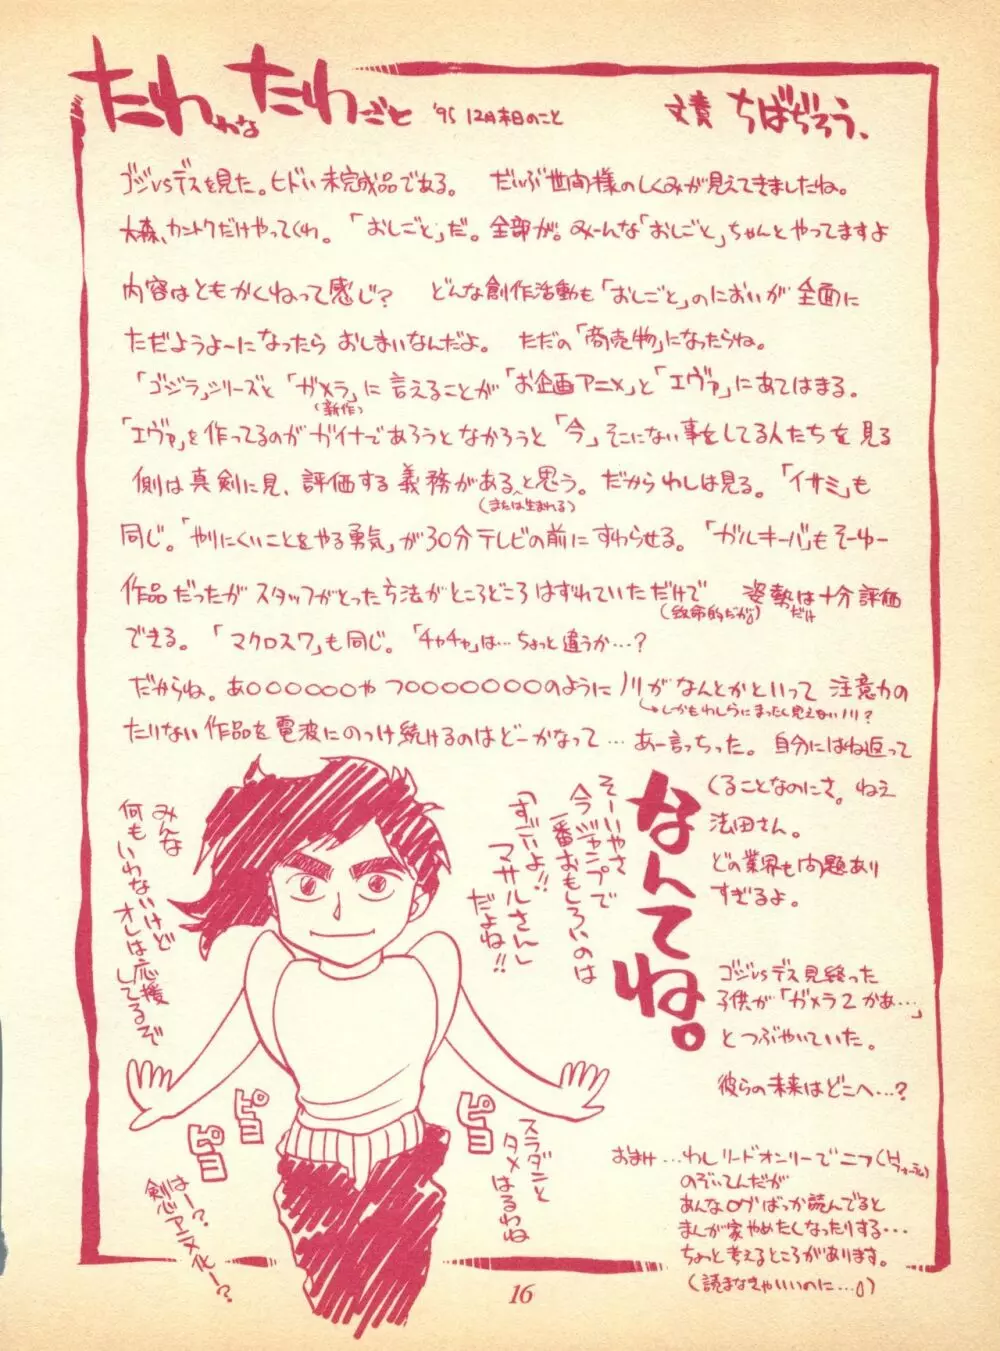 たわわなたわごと '95 12月末日のこと 文責 ちばぢろう、
ゴジvsデスを見た。ヒドい未完成品である。 だいぶ世間様のしくみが見えてきましたね。
大森、カントクだけやってくれ。「おしごと」だ。全部が。みーんな「おしごと」ちゃんとやってますよ
内容はともかくねって感じ? どんな創作活動も「おしごと」のにおいが全面に
ただようよーになったらおしまいなんだよ。 ただの「商売物」になったらね。
「ゴジラ」シリーズと「ガメラ」に言えることが「お企画アニメ」と「エヴァ」にあてはまる。
(新作)
「エヴァ」を作ってるのがガイナであろうとなかろうと「今」そこにない事をしてる人たちを見る
側は真剣に見、評価する義務があると思う。だからわしは見る。「イサミ」も
(または生まれる)
同じ。「やりにくいことをやる勇気」が30分テレビの前にすわらせる。「ガルキーバ」もそーゆー
作品だったがスタッフがとった方法がところどころはずれていただけで 姿勢は十分評価
(致命的だが。) だけ
できる。「マクロス7」も同じ。「チャチャ」は…ちょっと違うか…?
だからね。あ○○○○○○やつ○○○○○○○のようにノリがなんとかといって注意力の
しかもわしらにまったく見えないノリ?
たりない作品を電波にのっけ続けるのはどーかなって…あー言っちった。自分にはね返って
くることなのにさ。ねえ
法田さん。
どの業界も問題あり
すぎるよ。
なんてね。
そーいやさ
今ジャンプで
一番おもしろいのは
「すごいよ!!
マサルさん」
だよね!!
みんな
何もいわないけど
オレは応援
してるぞ
ゴジvsデス見終った
子供が「ガメラ2かあ…」
とつぶやいていた。
彼らの未来はどこへ…?
ピヨ
ピヨ
ピヨ
スラダンと
タメはるわね
はー?
剣心アニメ化ー?
おまけ…わしリードオンリーでニフ(Hフォーラム)
のぞいてんだが
あんなログばっか読んでると
まんが家やめたくなったりする…
ちょっと考えるところがあります。
(読まなきゃいいのに…。)
16